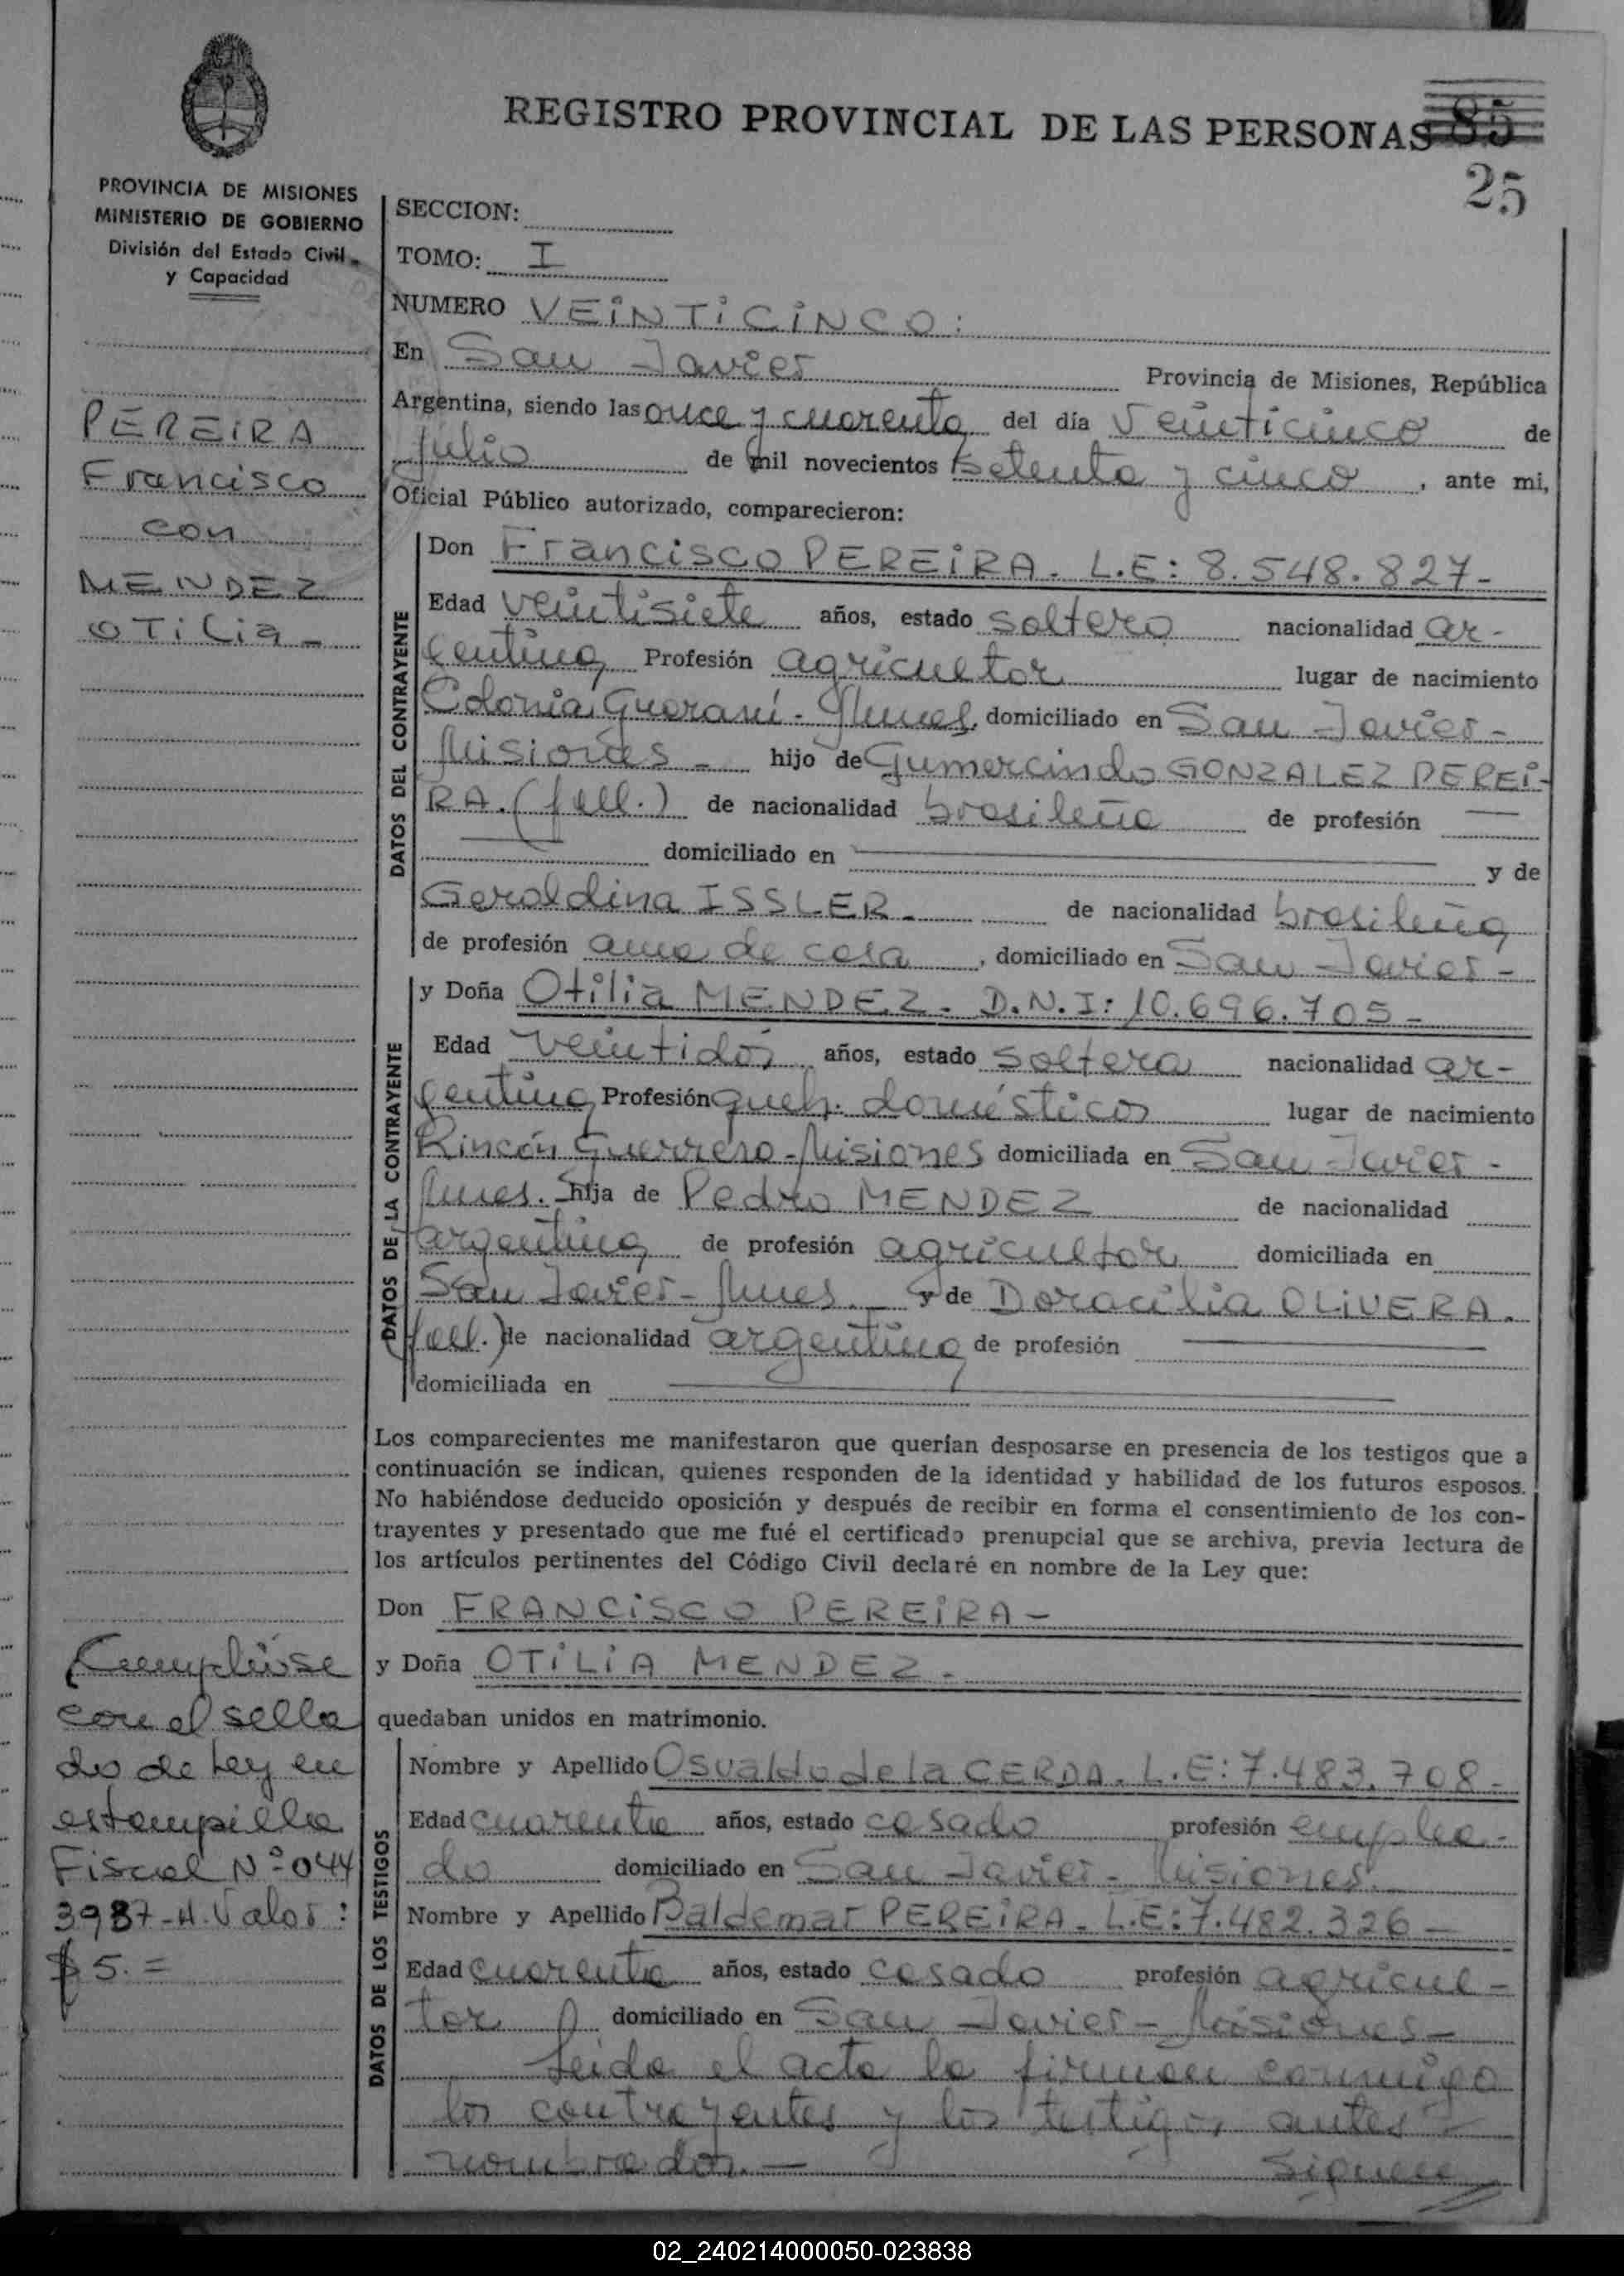 REGISTRO PROVINCIAL DE LAS PERSONAS 85
25
PROVINCIA DE MISIONES
MINISTERIO DE GOBIERNO
División del Estado Civil
y Capacidad
PEREIRA
Francisco
con
MENDEZ
OTiLia -
SECCION:
TOMO: I
NUMERO VEiNTiCiNCO:
En San Javier Provincia de Misiones, República
Argentina, siendo las once y cuarenta del día Veinticinco de
Julio de mil novecientos setenta y cinco, ante mi,
Oficial Público autorizado, comparecieron:
DATOS DEL CONTRAYENTE
Don Francisco PEREiRA. L.E: 8.548.827-
Edad veintisiete años, estado soltero nacionalidad ar-
gentina Profesión agricultor lugar de nacimiento
Colonia Guaraní - Mnes. domiciliado en San Javier -
Misiones - hijo de Gumercindo GONZALEZ PEREi-
RA. (fall.) de nacionalidad brasileña de profesión —
— domiciliado en — y de
Geroldina ISSLER. de nacionalidad brasileña
de profesión ama de casa, domiciliado en San Javier -
DATOS DE LA CONTRAYENTE
y Doña Otilia MENDEZ. D.N.I: 10.696.705 -
Edad veintidós años, estado soltera nacionalidad ar-
gentina Profesión queh. domésticos lugar de nacimiento
Rincón Guerrero - Misiones domiciliada en San Javier -
Mnes. hija de Pedro MENDEZ de nacionalidad
argentina de profesión agricultor domiciliada en
San Javier - Mnes. - y de Doracilia OLIVERA.
(fall.) de nacionalidad argentina de profesión —
domiciliada en —
Los comparecientes me manifestaron que querían desposarse en presencia de los testigos que a
continuación se indican, quienes responden de la identidad y habilidad de los futuros esposos.
No habiéndose deducido oposición y después de recibir en forma el consentimiento de los con-
trayentes y presentado que me fué el certificado prenupcial que se archiva, previa lectura de
los artículos pertinentes del Código Civil declaré en nombre de la Ley que:
Don FRANCiSCO PEREiRA -
y Doña OTiLiA MENDEZ.
quedaban unidos en matrimonio.
Cumplióse
con el sella
do de Ley en
estampilla
Fiscal Nº 044
3987-H. Valor:
$ 5. =
DATOS DE LOS TESTIGOS
Nombre y Apellido Osvaldo de la CERDA. L.E: 7.483.708 -
Edad cuarenta años, estado casado profesión emplea-
do domiciliado en San Javier - Misiones.
Nombre y Apellido Baldemar PEREiRA. L.E: 7.482.326 -
Edad cuarenta años, estado casado profesión agricul -
tor domiciliado en San Javier - Misiones -
Leida el acta la firman conmigo
los contrayentes y los testigos antes
nombrados. — Siguen
02_240214000050-023838